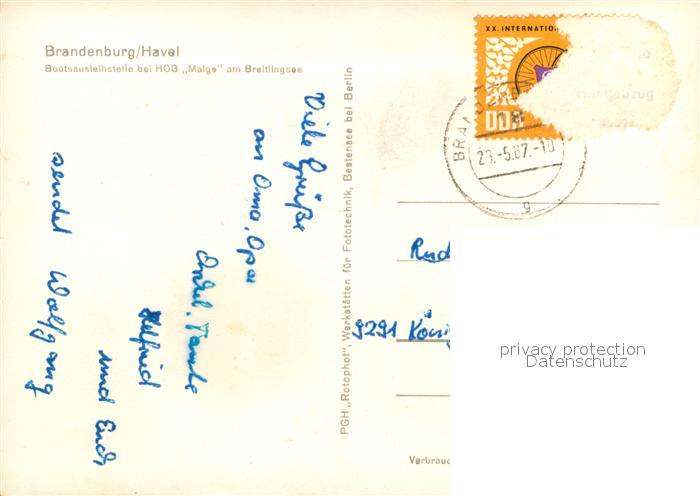 Brandenburg/Havel
Bootsausleihstelle bei HOG „Malge" am Breitlingsee
Viele Grüße
an Oma, Opa
Onkel, Tante
Helfried
und Euch
sendet Wolfgang
PGH „Rotophot", Werkstätten für Fototechnik, Bestensee bei Berlin
XX. INTERNATIO
DDR
BRAN
23.-5.67.-10
g
Rud
9291 Köni
privacy protection
Datenschutz
Verbrauc